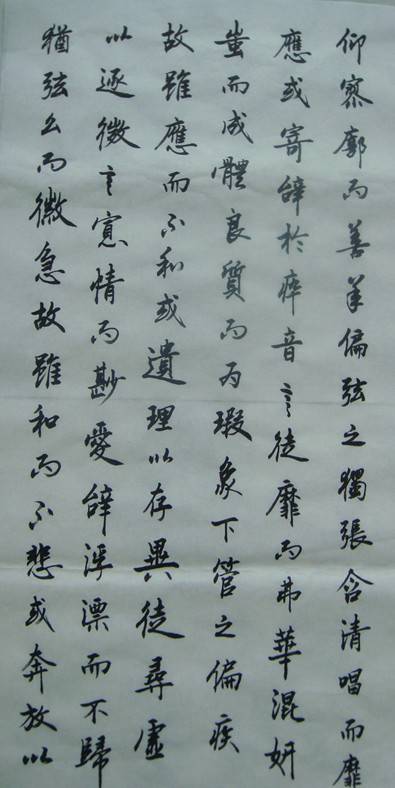 仰寥廓而偏弦之獨張含清唱而靡
應或寄辭於瘁音言徒靡而弗華混妍
蚩而成體良質而为瑕象下管之偏疾
故雖應而不和或遺理以存異徒尋虛
以逐微言寡情而尠愛辭浮漂而不歸
猶弦么而徽急故雖和而不悲或奔放以